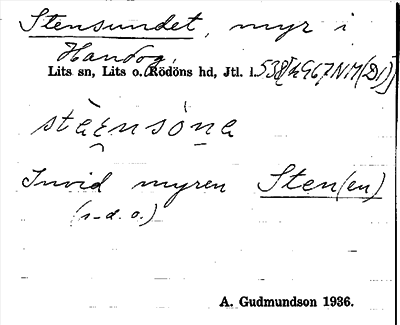 Stensundet, myr i
Handog,
Lits sn, Lits o. Rödöns hd, Jtl. l.
stæ̀nsòna
Invid myren Sten(en)
(s.d.o.)
A. Gudmundson 1936.